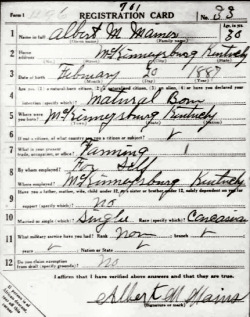 Form 1
761
REGISTRATION CARD
No. 33
1 Name in full Albert M Mames
Age, in yrs
30
2 Home address McKinneysburg Kentucky
3 Date of birth February 20 1887
(Month) (Day) (Year)
declared your intention (specify which)? Natural Born
5 Where were you born? McKinneysburg Kentucky
6 If not a citizen, of what country are you a citizen or subject?
7 What is your present trade, occupation, or office? Farming 1
8 By whom employed? Self
Where employed? McKinneysburg Kentucky
9 Have you a father, mother, wife, child under 12, or a sister or brother under 12, solely dependent on you for support (specify which)? No
10 Married or single (which)? Single Race (specify which)? Caucasian
11 What military service have you had? Rank non branch
years Nation or State
12 Do you claim exemption from draft (specify grounds)? No
I affirm that I have verified above answers and that they are true.
Albert M Mains
(Signature or mark)